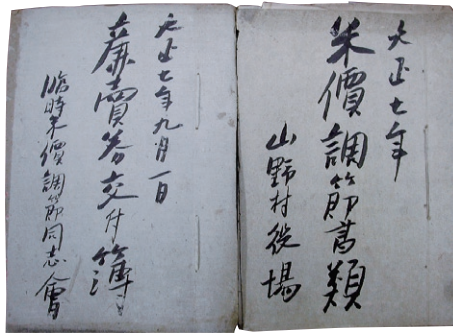 大正七年
米價調節書類
山野村役場
大正七年九月一日
廉賣券交付簿
臨時米價調節同志會